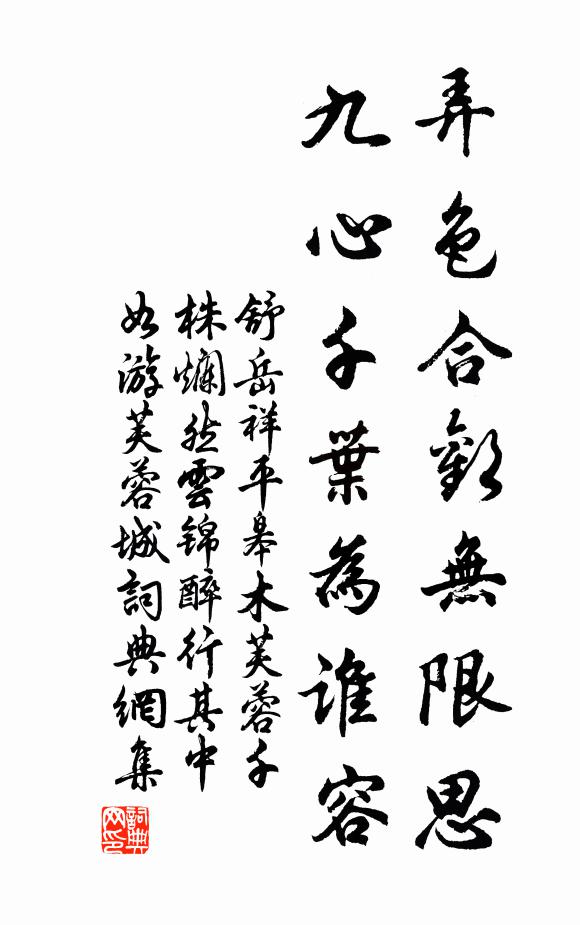 弄色合歡無限思
九心千葉為誰容
舒岳祥平皋木芙蓉千
株爛然雲錦醉行其中
如游芙蓉城詞典網集
詞典
网印